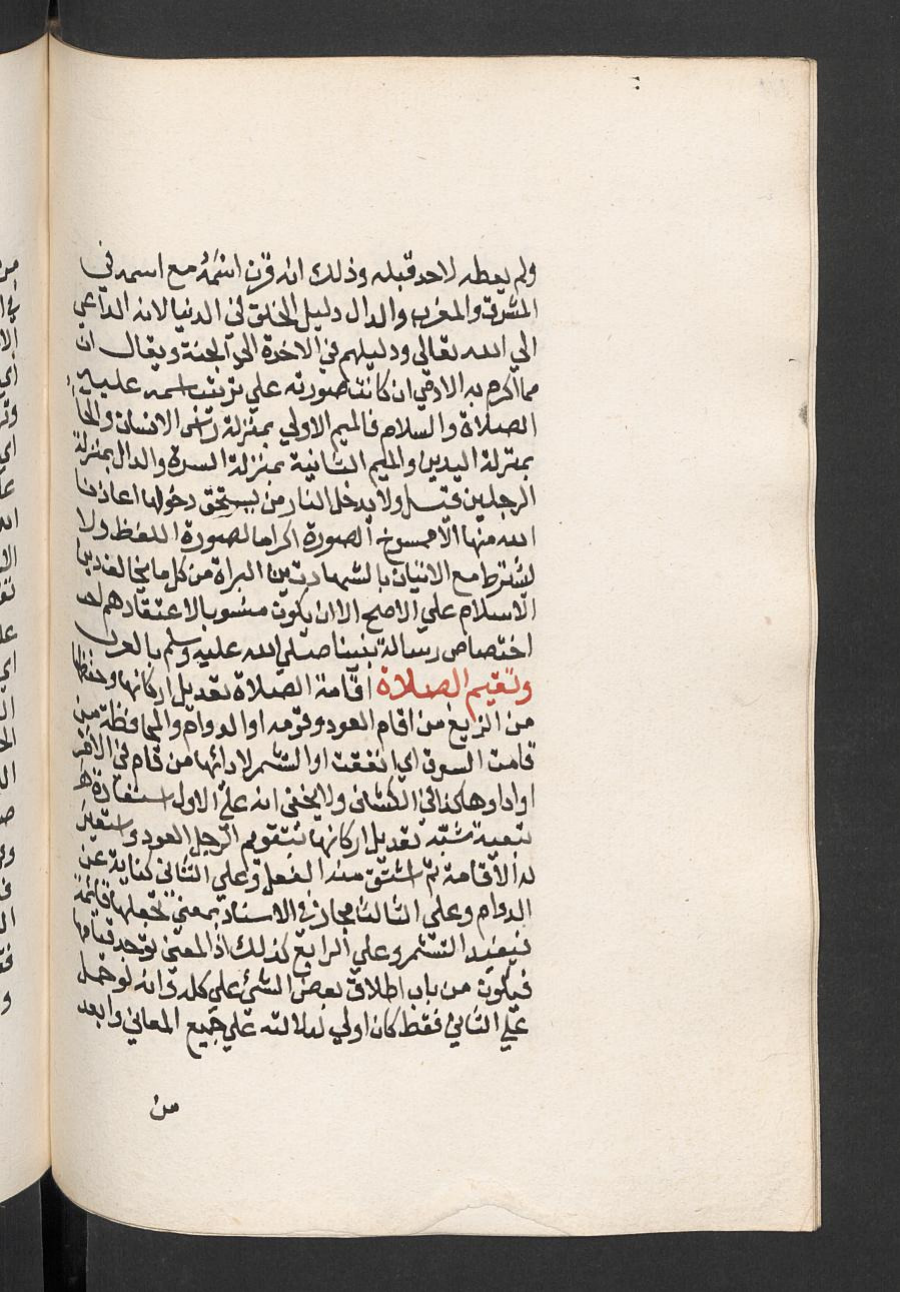 ولم يعطه لاحد قبله وذلك انه قرن اسمُهُ مع اسمه في
المشرق والمغرب والدال دليل الخلق في الدنيا لانه الداعي
الي الله تعالي ودليلهم في الاخرة الي الجنة ويقال ان
مما اكرم به الادمي ان كانت صورته علي ترتيب اسمه عليه
الصلاة والسلام فالميم الاولي بمنزلة راس الانسان والحا
بمنزلة اليدين والميم الثانية بمنزلة السرة والدال بمنزلة
الرجلين قيل ولا يدخل النار من يستحق دخولها اعاذنا
الله منها الا ممسوخ الصورة اكراما لصورة اللفظ ولا
يشترط مع الاتيان بالشهادتين البراة من كل ما يخالف دين
الاسلام علي الاصح الا ان يكون منسوبا لاعتقادهم
اختصاص رسالة نبينا صلي الله عليه وسلم بالعرب
وتقيم الصلاة اقامة الصلاة تعديل اركانها وحفظها
من الزيغ من اقام العود وقومه او الدوام والمحافظة من
قامت السوق اي نفقت او التشمر لادائها من قام في الامر
او اداوها كذا في الكشاف ولا يخفي انه علي الاول استعارة
تبعية شبه تعديل اركانها بتقويم الرجل العود واستعير
له الاقامة ثم اشتق منه الفعل وعلي الثاني كناية عن
الدوام وعلي الثالث مجاز في الاسناد بمعني تجعلها قائمة
فيفيد التشمر وعلي الرابع كذلك اذ المعني توجد قيامها
فيكون من باب اطلاق بعض الشئ علي كله وانه لو حمل
علي الثاني فقط كان اولي لدلالته علي جميع المعاني وابعد
من